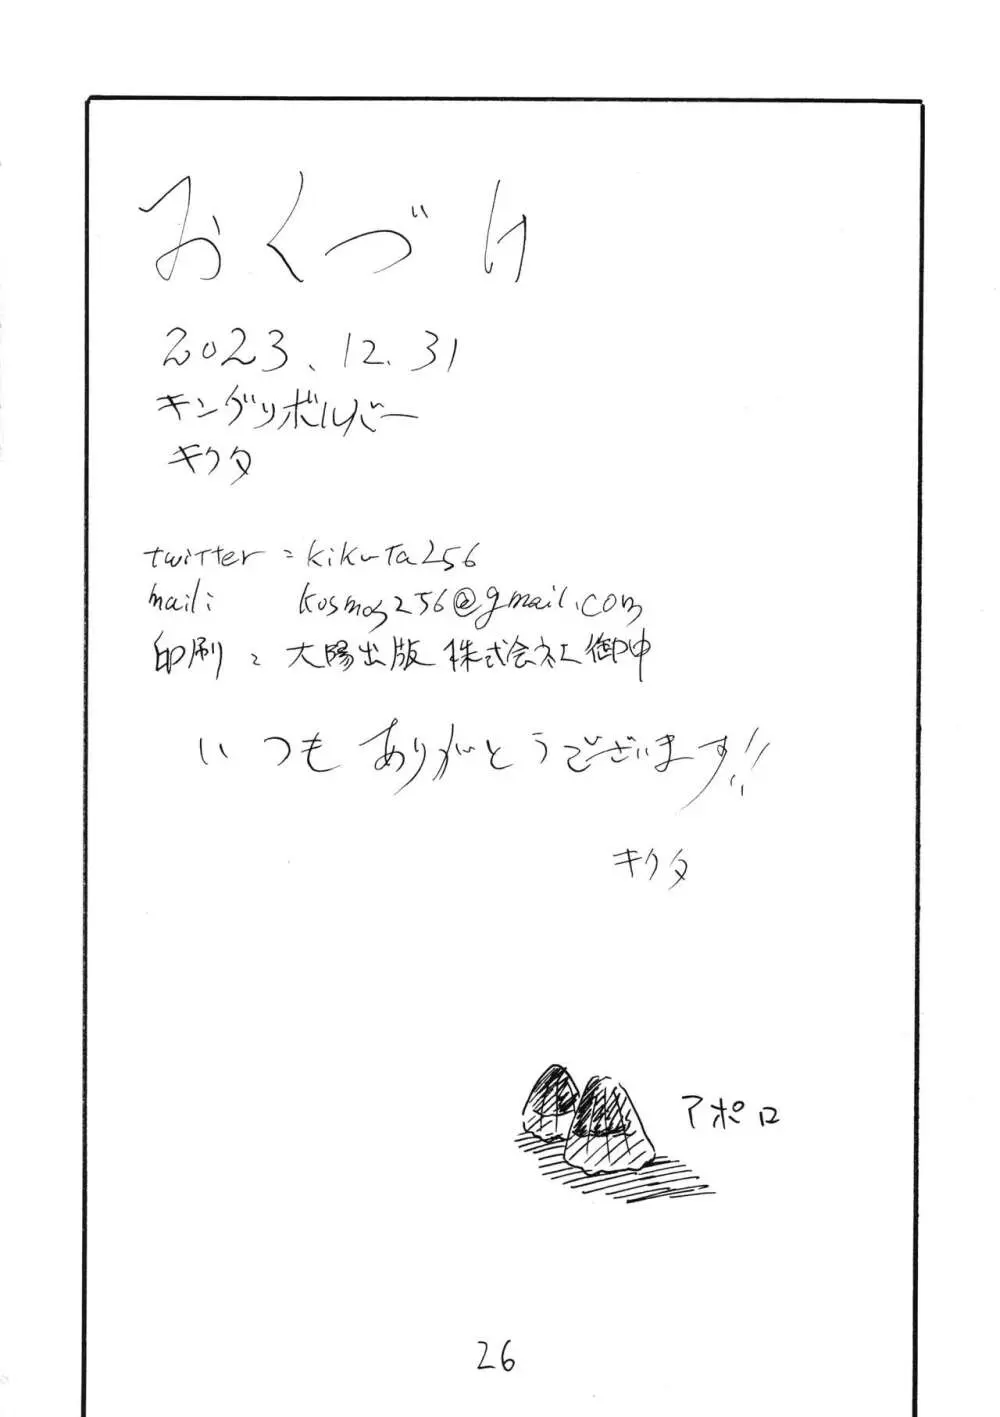 おくづけ
2023.12.31
キングリボルバー
キクタ
twitter:kikuta256
mail: kosmos256@gmail.com
印刷:大陽出版 株式会社 御中
いつも ありがとうございます!!
キクタ
アポロ
26